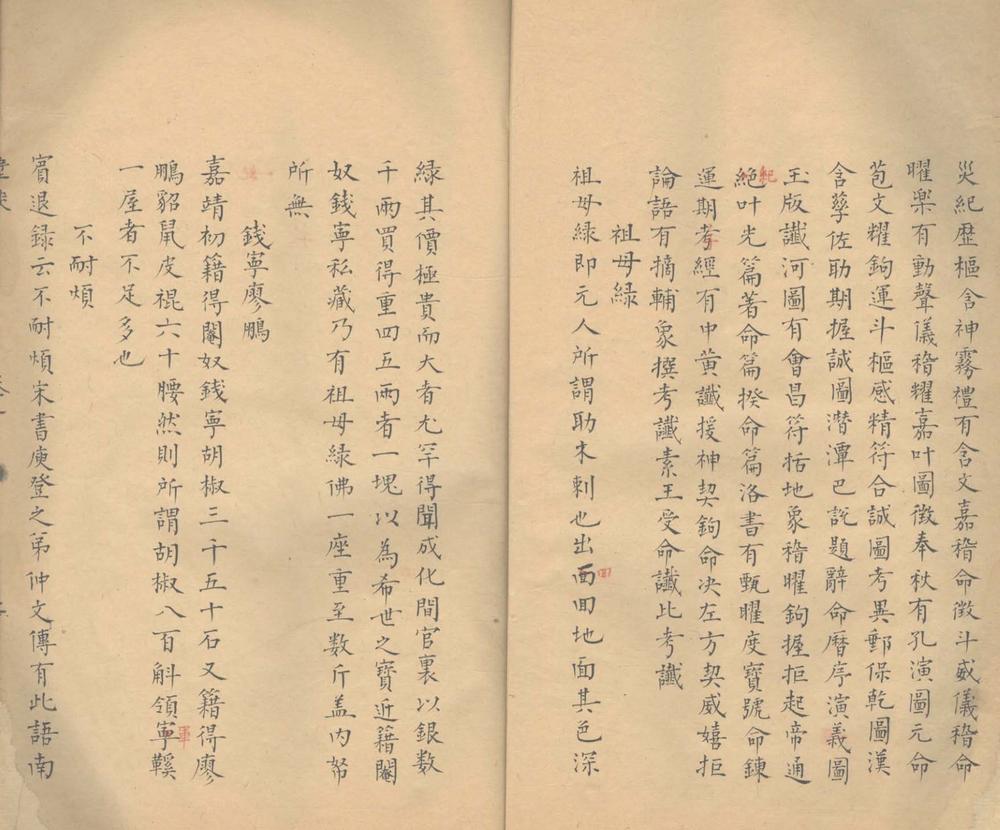 災紀歷樞含神霧禮有含文嘉稽命徵斗威儀稽命
曜樂有動聲儀稽耀嘉叶圖徵奉秋有孔演圖元命
苞文耀鉤運斗樞感精符合誠圖考異郵保乾圖漢
含孳佐助期握誠圖潛潭巴說題辭命曆序演義圖
玉版讖河圖有會昌符括地象稽曜鉤握拒起帝通
紀
絶叶光篇著命篇揆命篇洛書有甄曜度寶號命錬
運期考經有中黄讖援神契鉤命决左方契威嬉拒
論語有摘輔象撰考讖素王受命讖比考讖
祖母緑
祖母緑即元人所謂助木剌也出面回地面其色深
回
緑其價極貴而大者尤罕得聞成化間官裏以銀数
千兩買得重四五兩者一塊以為希世之寶近籍閹
奴錢寧私藏乃有祖母緑佛一座重至数斤盖内帑
所無
錢寧廖鵬
嘉靖初籍得閹奴錢寧胡椒三千五十石又籍得廖
鵬貂鼠皮裩六十腰然則所謂胡椒八百斛領寧鞵
軍
一屋者不足多也
不耐煩
賓退録云不耐煩宋書庾登之弟仲文傳有此語南